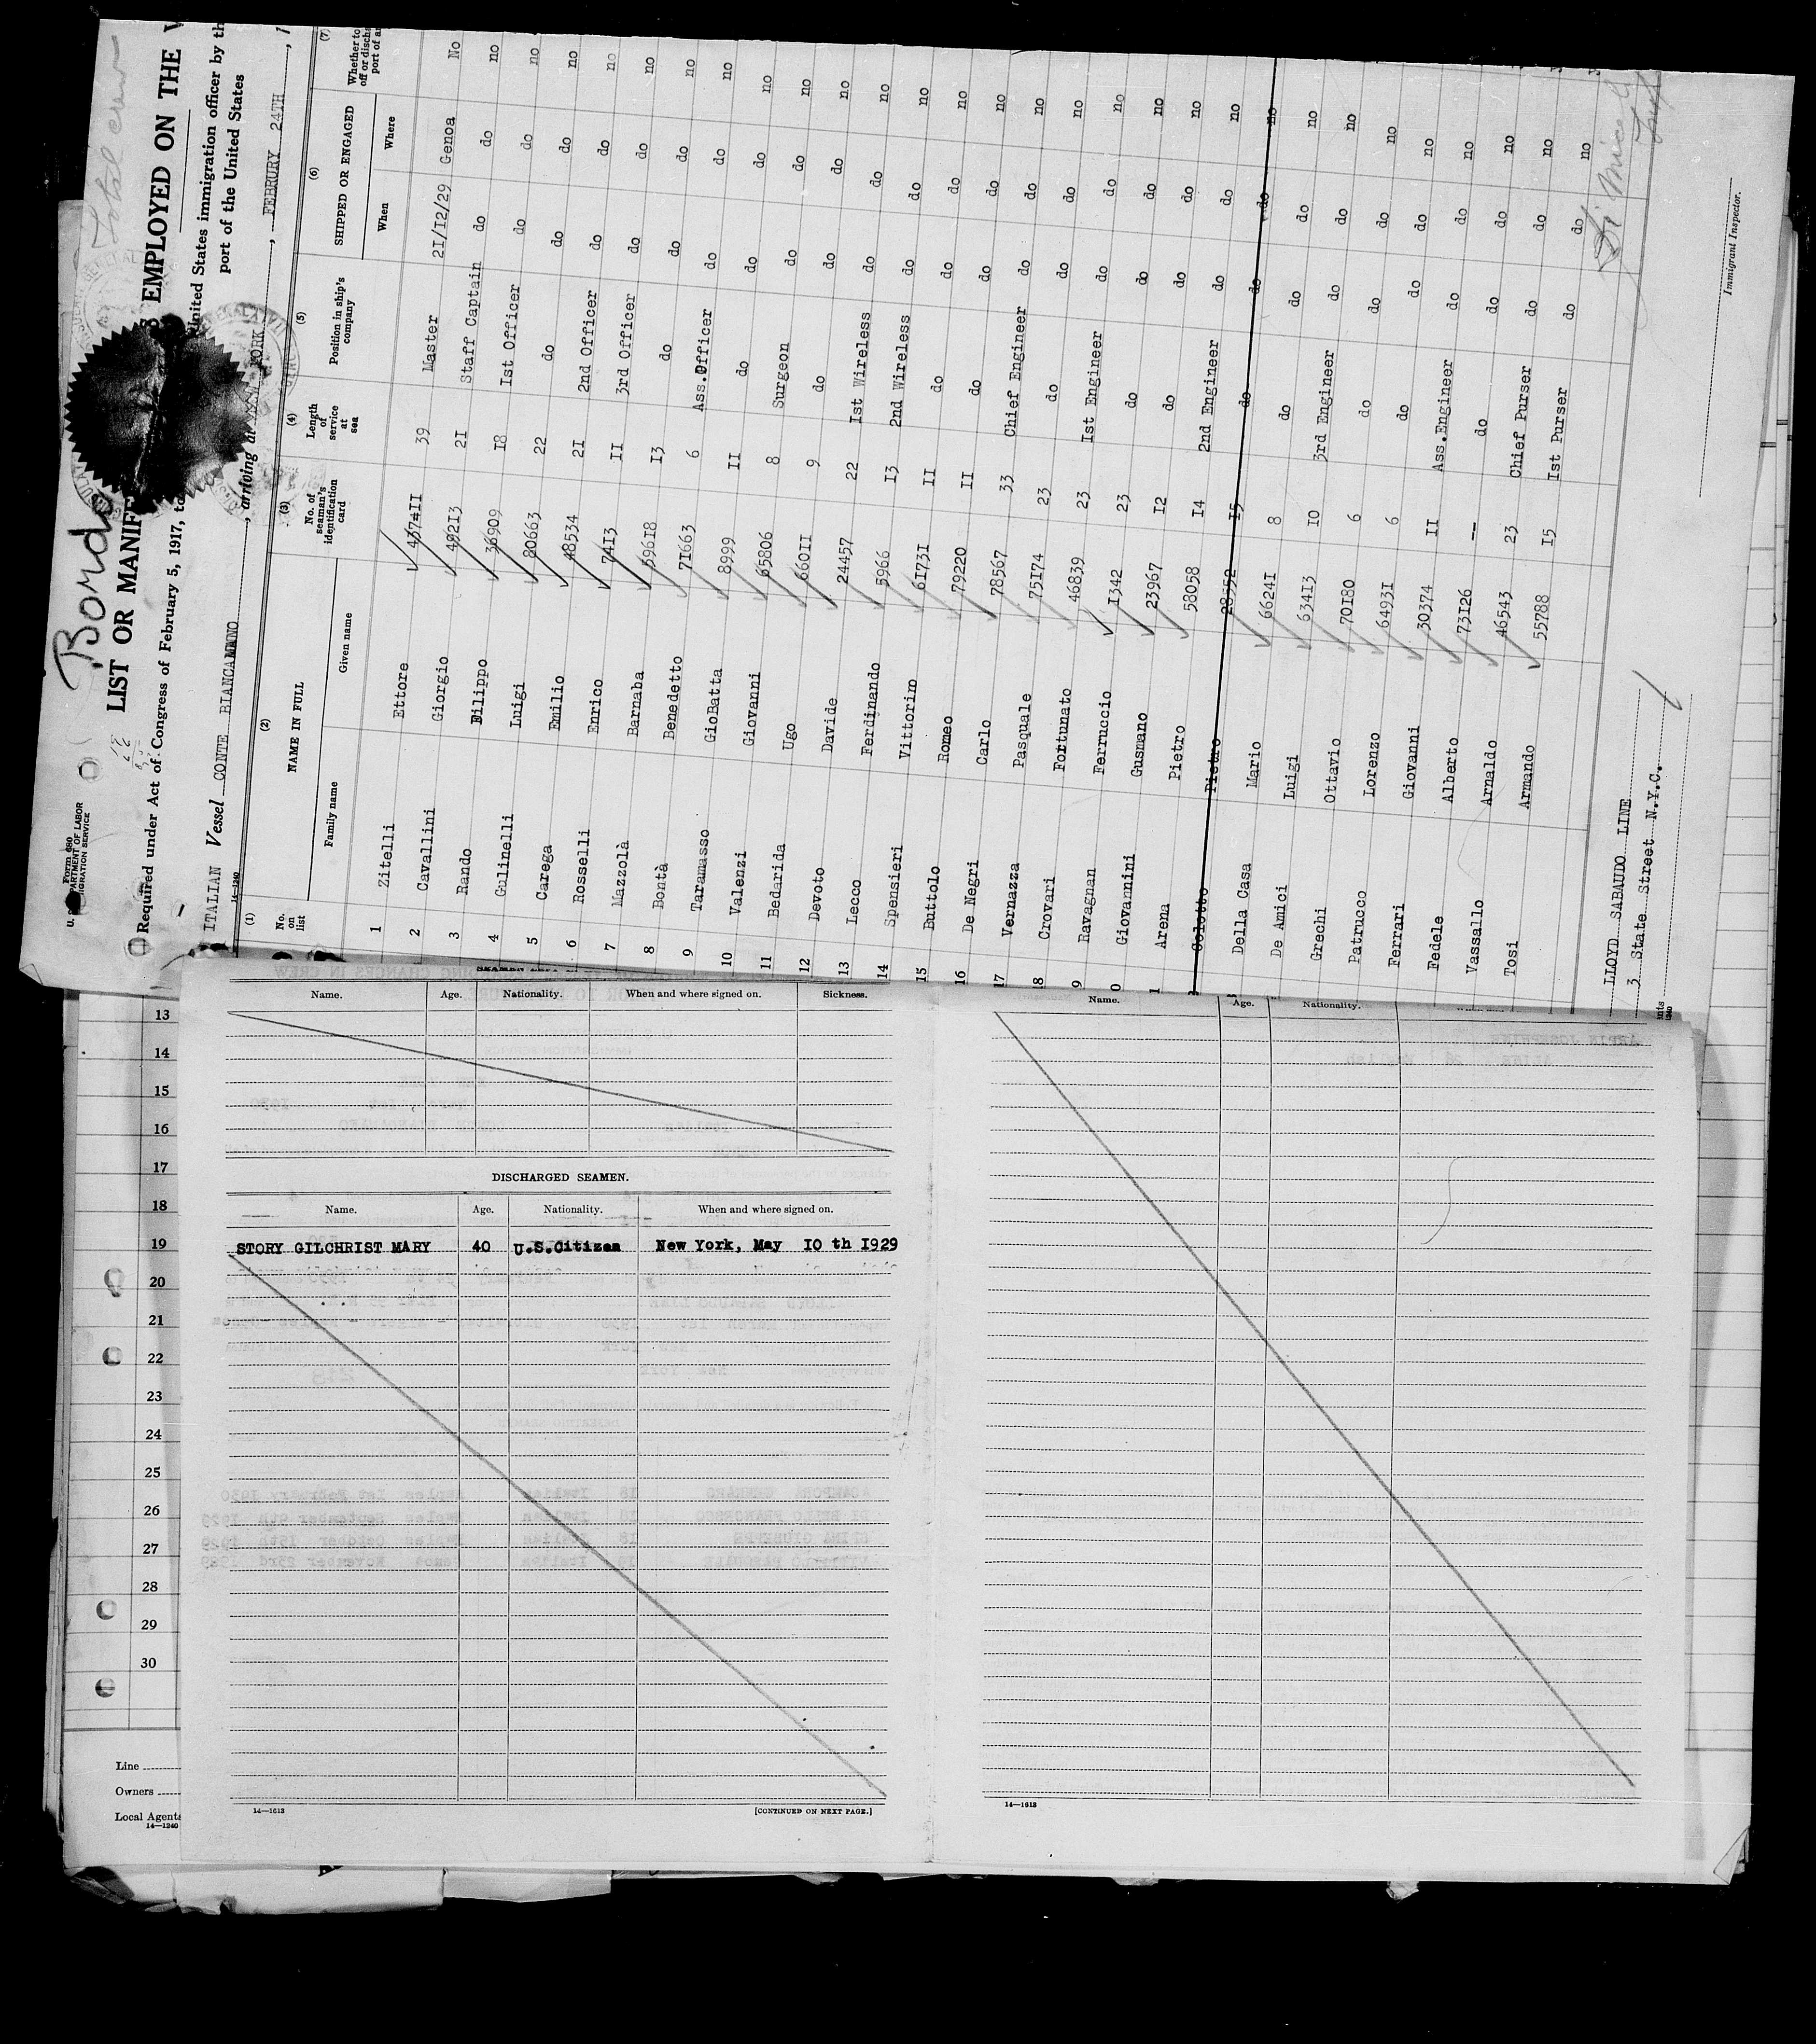 Bordo
Total crew
Form 680
LIST OR MANIFE
S EMPLOYED ON THE V
Required under Act of Congress of February 5, 1917, to
United States immigration officer by th
port of the United States
ITALIAN Vessel CONTE BIANCAMANO , arriving at NEW YORK , FEBRURY 24TH , 1
(1) (2) (3) (4) (5) (6) (7)
No. on list NAME IN FULL No. of seaman's identification card Length of service at sea Position in ship's company SHIPPED OR ENGAGED Whether to
off or discha
port of ar
Family name Given name When Where
1 Zitelli Ettore 39 Master 2I/I2/29 Genoa No
2 Cavallini Giorgio 492I3 2I Staff Captain do do no
3 Rando Filippo 36909 I8 Ist Officer do do no
4 Gulinelli Luigi 80663 22 do do do no
5 Carega Emilio 48534 2I 2nd Officer do do no
6 Rosselli Enrico 74I3 II 3rd Officer do do no
7 Mazzolà Barnaba 596I8 I3 do do do no
8 Bontà Benedetto 7I663 6 Ass.Officer do do no
9 Taramasso GioBatta 8999 II do do do no
10 Valenzi Giovanni 65806 8 Surgeon do do no
11 Bedarida Ugo 660II 9 do do do no
12 Devoto Davide 24457 22 Ist Wireless do do no
13 Lecco Ferdinando 5966 I3 2nd Wireless do do no
14 Spensieri Vittorino 6I73I II do do do no
15 Buttolo Romeo 79220 II do do do no
16 De Negri Carlo 78567 33 Chief Engineer do do no
17 Vernazza Pasquale 75I74 23 do do do no
18 Crovari Fortunato 46839 23 Ist Engineer do do no
9 Ravagnan Ferruccio I342 23 do do do no
0 Giovannini Gusmano 23967 I2 do do do no
1 Arena Pietro 58058 I4 2nd Engineer do do no
Colotto Pietro 28552 I5 do do do no
Della Casa Mario 6624I 8 do do do no
De Amici Luigi 634I3 IO 3rd Engineer do do no
Grechi Ottavio 70I80 6 do do do no
Patrucco Lorenzo 6493I 6 do do do no
Ferrari Giovanni 30374 II Ass.Engineer do do no
Fedele Alberto 73I26 — do do do no
Vassallo Arnaldo 46543 23 Chief Purser do do no
Tosi Armando 55788 I5 Ist Purser do do no
LLOYD SABAUDO LINE
3 State Street N.Y.C.
Immigrant Inspector.
Name. Age. Nationality. When and where signed on. Sickness.
DISCHARGED SEAMEN.
Name. Age. Nationality. When and where signed on.
STORY GILCHRIST MARY 40 U.S.Citizen New York, May IO th I929
14—1613 [CONTINUED ON NEXT PAGE.]
Name. Age. Nationality.
14—1613
13
14
15
16
17
18
19
20
21
22
23
24
25
26
27
28
29
30
Line
Owners
Local Agents
14—1240